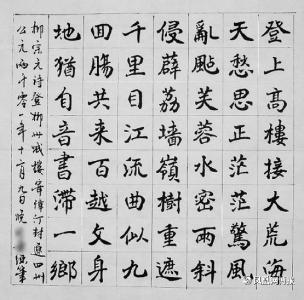 登上高樓接大荒海
天愁思正茫茫驚風
亂颭芙蓉水密雨斜
侵薜荔墙嶺樹重遮
千里目江流曲似九
回腸共来百越文身
地猶自音書滯一鄉
柳宗元詩登柳州城樓寄漳汀封連四州
公元两千零一年十一月九日晚